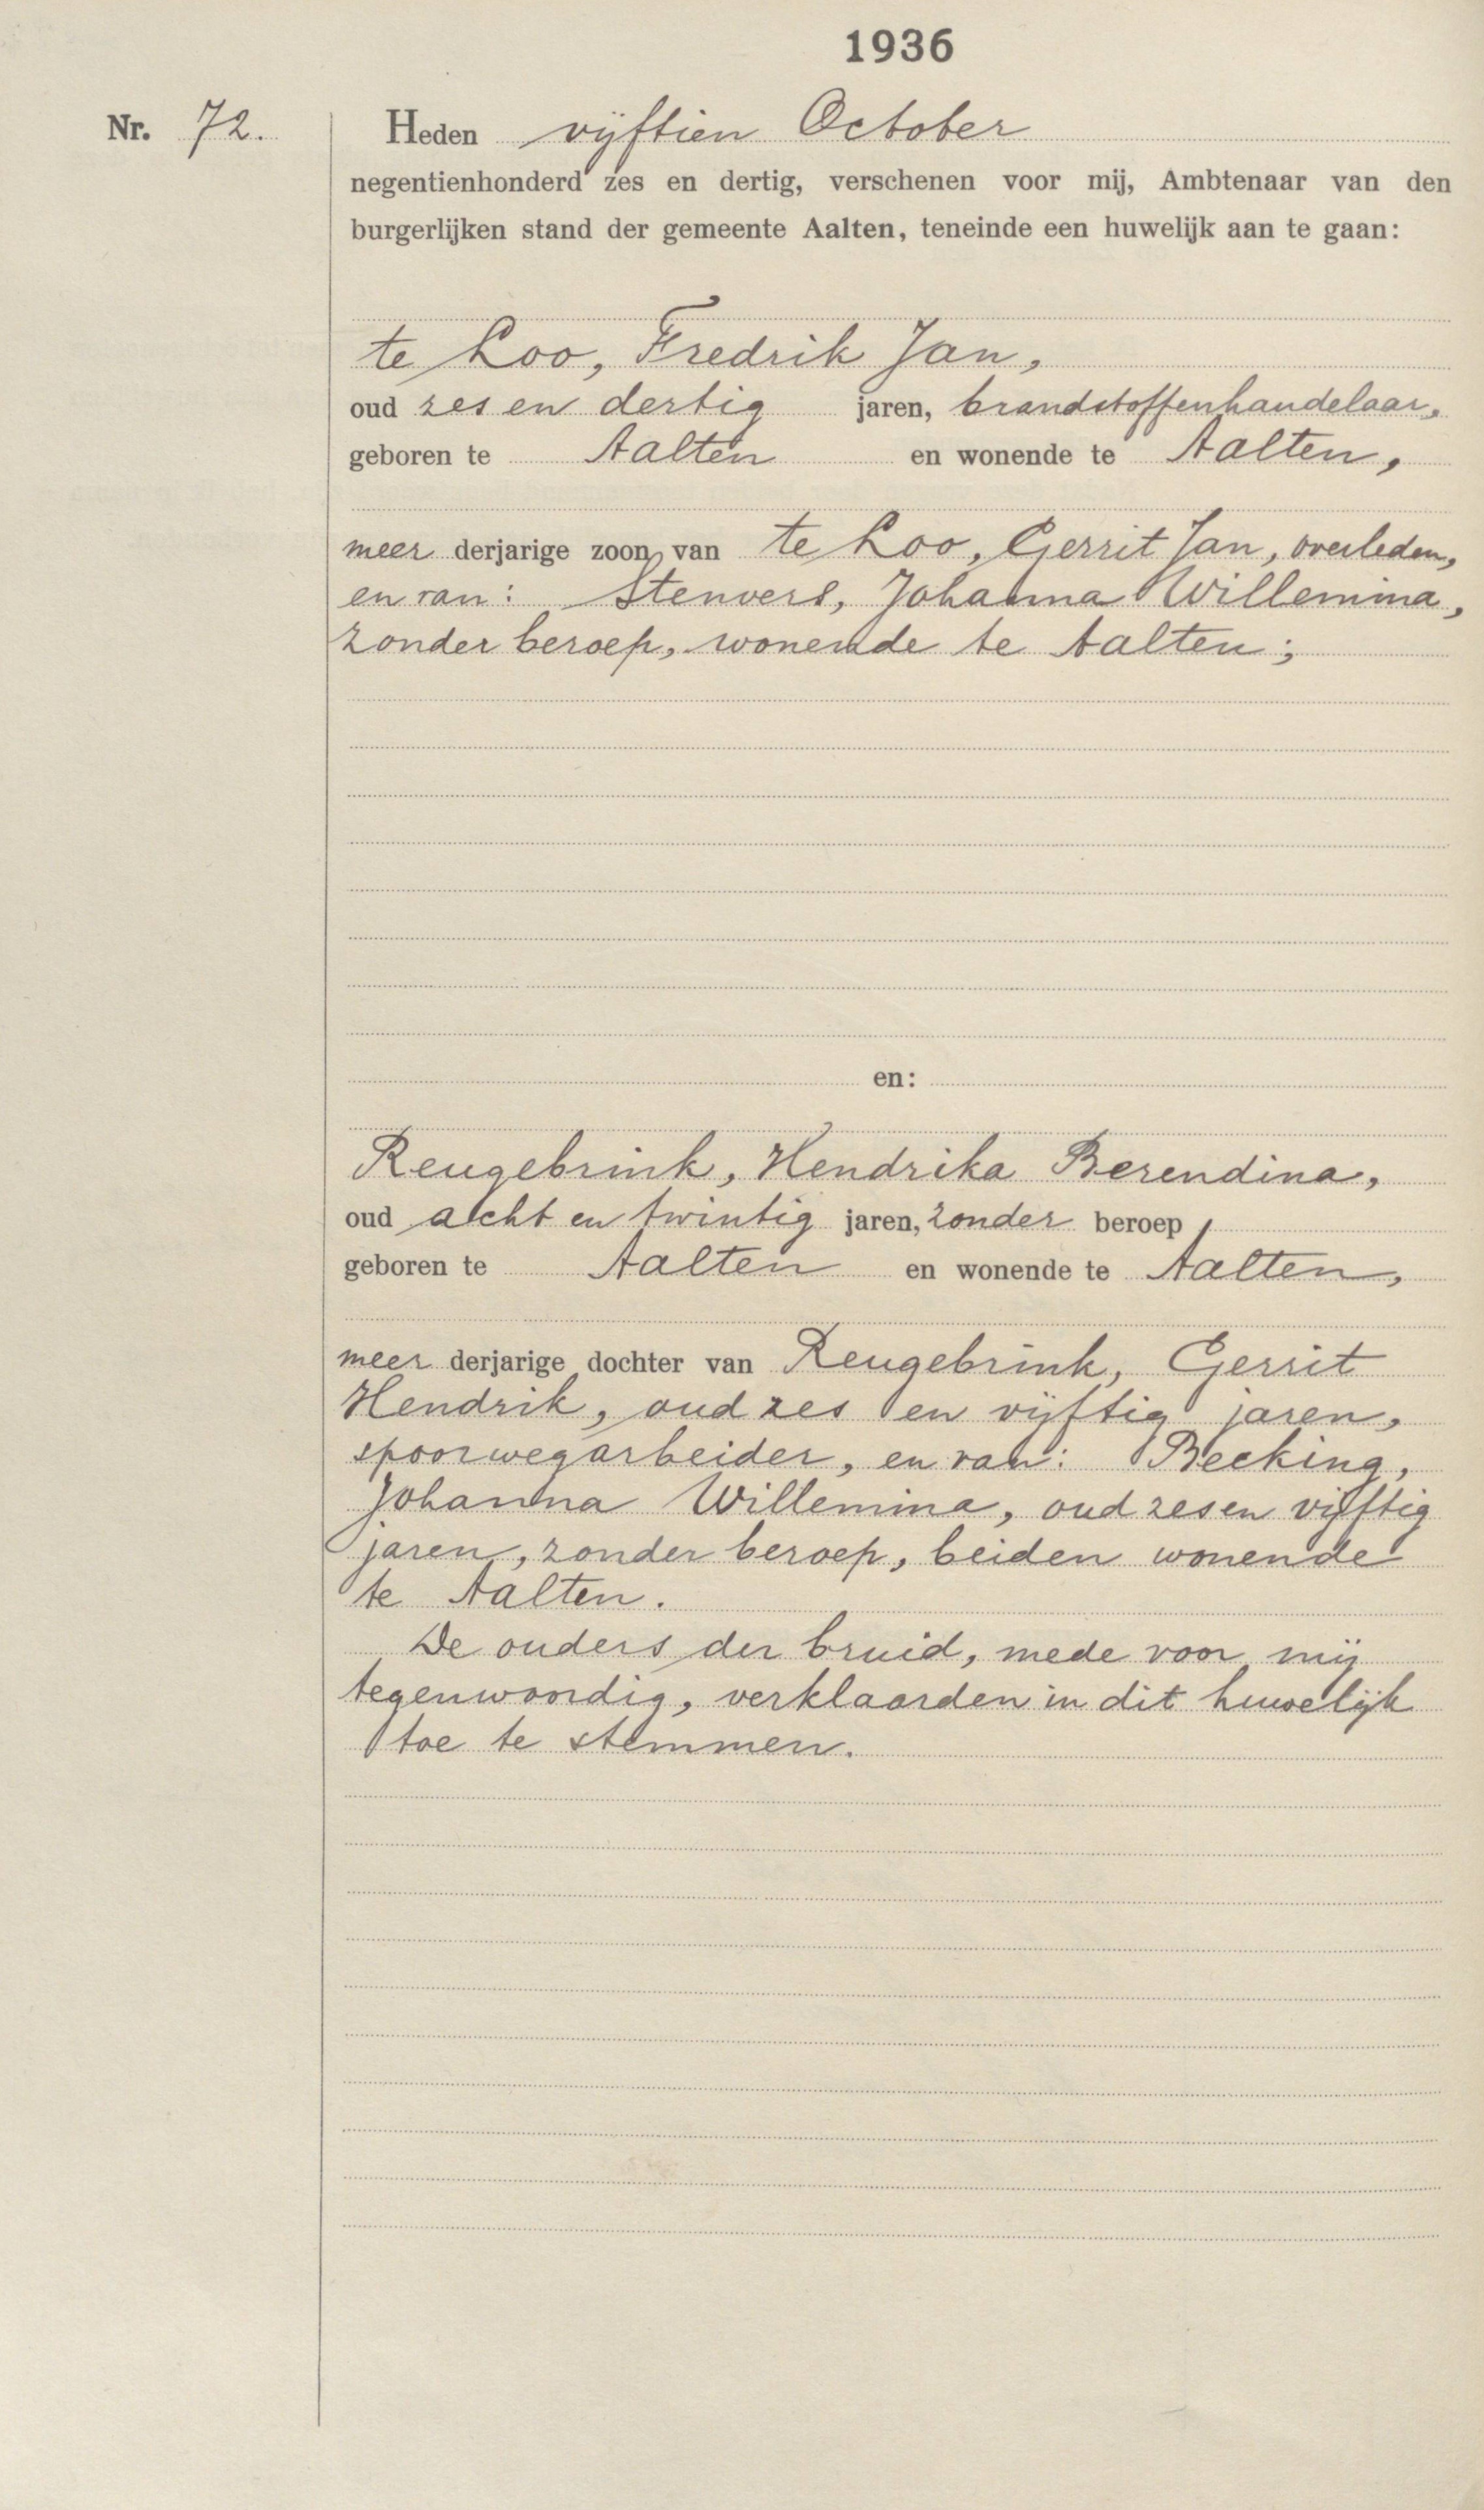 1936
Nr. 72.
Heden vijftien October
negentienhonderd zes en dertig, verschenen voor mij, Ambtenaar van den
burgerlijken stand der gemeente Aalten, teneinde een huwelijk aan te gaan:
te Loo, Fredrik Jan,
oud zes en dertig jaren, brandstoffenhandelaar,
geboren te Aalten en wonende te Aalten,
meer derjarige zoon van te Loo, Gerrit Jan, overleden,
en van: Stenvers, Johanna Willemina,
zonder beroep, wonende te Aalten;
en:
Rengebrink, Hendrika Berendina,
oud acht en twintig jaren, zonder beroep,
geboren te Aalten en wonende te Aalten,
meer derjarige dochter van Rengebrink, Gerrit
Hendrik, oud zes en vijftig jaren,
spoorwegarbeider, en van: Becking,
Johanna Willemina, oud zes en vijftig
jaren, zonder beroep, beiden wonende
te Aalten.
De ouders der bruid, mede voor mij
tegenwoordig, verklaarden in dit huwelijk
toe te stemmen.